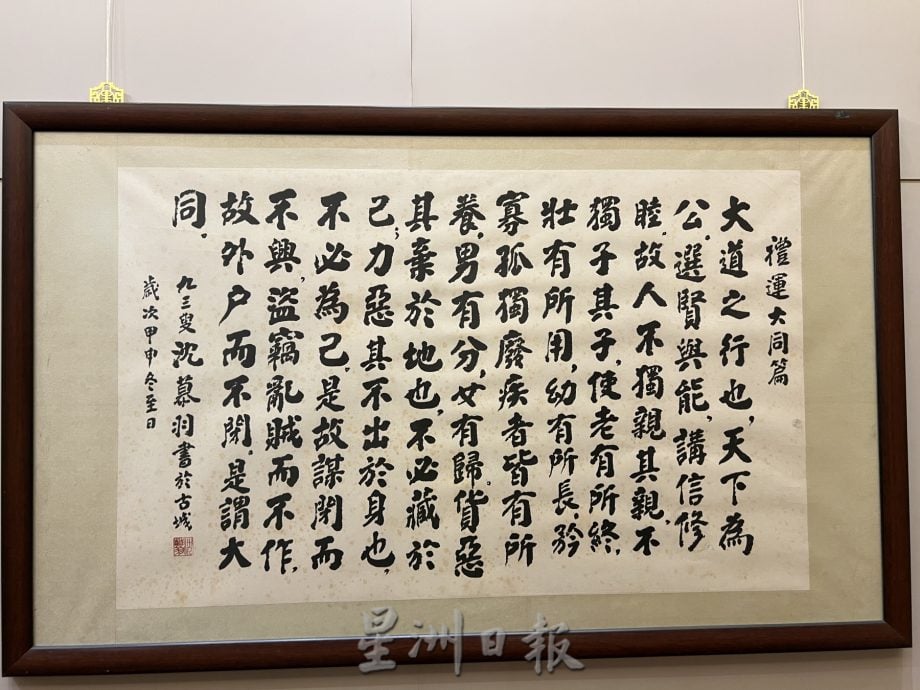 禮運大同篇
大道之行也，天下為
公。選賢與能，講信修
睦。故人不獨親其親，不
獨子其子，使老有所終，
壯有所用，幼有所長，矜
寡孤獨廢疾者皆有所
養。男有分，女有歸。貨惡
其棄於地也，不必藏於
己；力惡其不出於身也，
不必為己。是故謀閉而
不興，盜竊亂賊而不作，
故外户而不閉，是謂大
同。
九三叟沈慕羽書於古城
歲次甲申冬至日
星洲日報